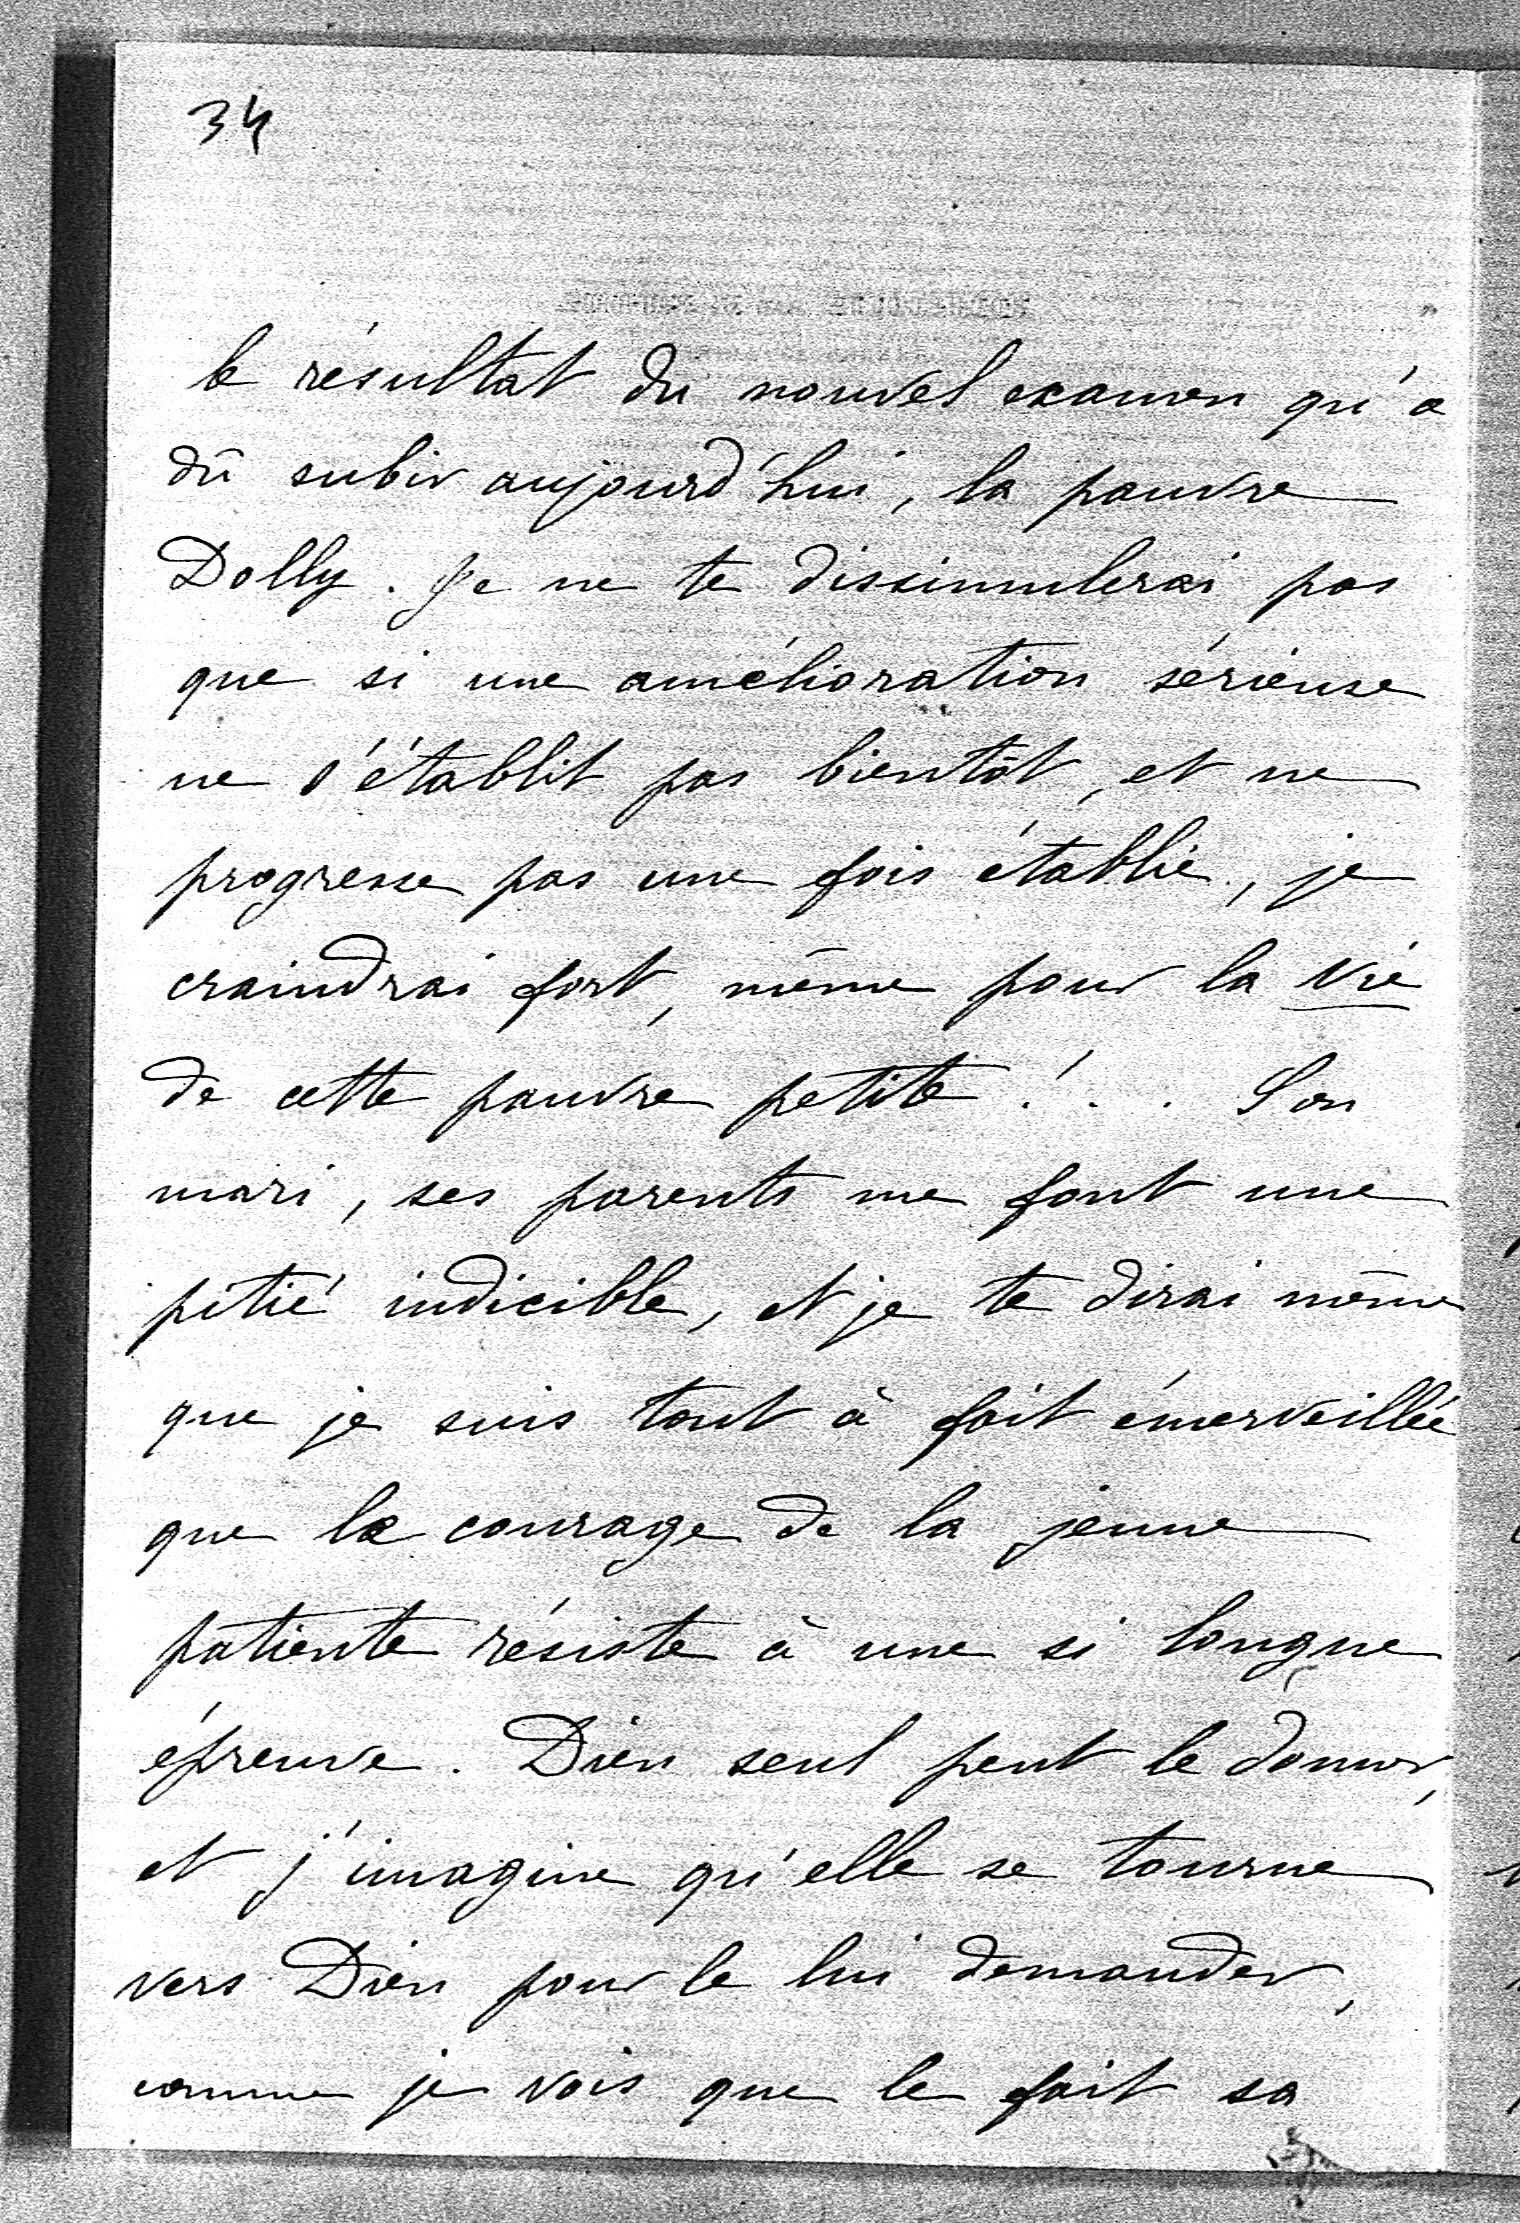 34
le résultat du nouvel examen qu'a
dû subir aujourd'hui, la pauvre
Dolly. Je ne te dissimulerai pas
que si une amélioration sérieuse
ne s'établit pas bientôt, et ne
progresse pas une fois établie, je
craindrai fort, même pour la vie
de cette pauvre petite !... Son
mari, ses parents me font une
pitié indicible, et je te dirai même
que je suis tout à fait émerveillée
que le courage de la jeune
patiente résiste à une si longue
épreuve. Dieu seul peut le donner,
et j'imagine qu'elle se tourne
vers Dieu pour le lui demander,
comme je vois que le fait sa